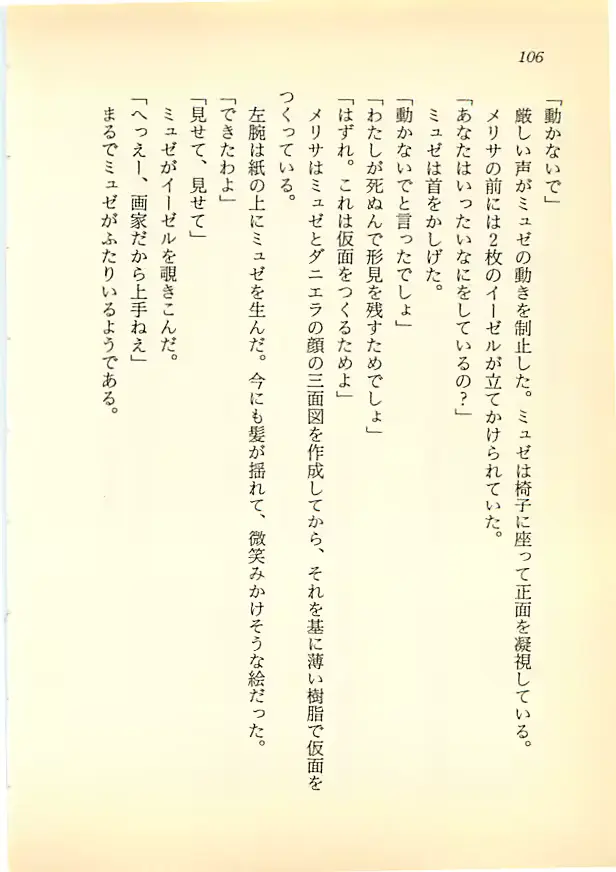 106
「動かないで」
厳しい声がミュゼの動きを制止した。ミュゼは椅子に座って正面を凝視している。
メリサの前には2枚のイーゼルが立てかけられていた。
「あなたはいったいなにをしているの?」
ミュゼは首をかしげた。
「動かないでと言ったでしょ」
「わたしが死ぬんで形見を残すためでしょ」
「はずれ。これは仮面をつくるためよ」
メリサはミュゼとダニエラの顔の三面図を作成してから、それを基に薄い樹脂で仮面を
つくっている。
左腕は紙の上にミュゼを生んだ。今にも髪が揺れて、微笑みかけそうな絵だった。
「できたわよ」
「見せて、見せて」
ミュゼがイーゼルを覗きこんだ。
「へっえー、画家だから上手ねえ」
まるでミュゼがふたりいるようである。